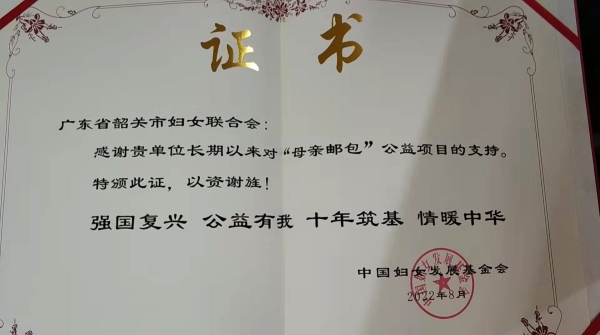 证书
广东省韶关市妇女联合会：
感谢贵单位长期以来对“母亲邮包”公益项目的支持。
特颁此证，以资谢旌！
强国复兴 公益有我 十年筑基 情暖中华
中国妇女发展基金会
2022年8月
中国妇女发展基金会